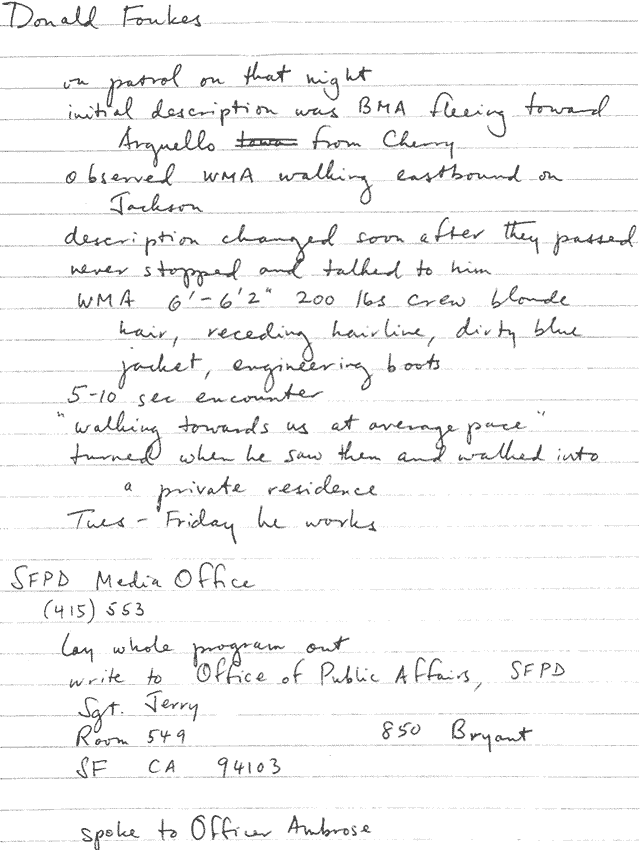 Donald Foukes
on patrol on that night
initial description was BMA fleeing toward
Arguello towa from Cherry
observed WMA walking eastbound on
Jackson
description changed soon after they passed
never stopped and talked to him
WMA 6'-6'2" 200 lbs crew blonde
hair, receding hairline, dirty blue
jacket, engineering boots
5-10 sec encounter
"walking towards us at average pace"
turned when he saw them and walked into
a private residence
Tues - Friday he works
SFPD Media Office
(415) 553
lay whole program out
write to Office of Public Affairs, SFPD
Sgt. Jerry
Room 549 850 Bryant
SF CA 94103
spoke to Officer Ambrose